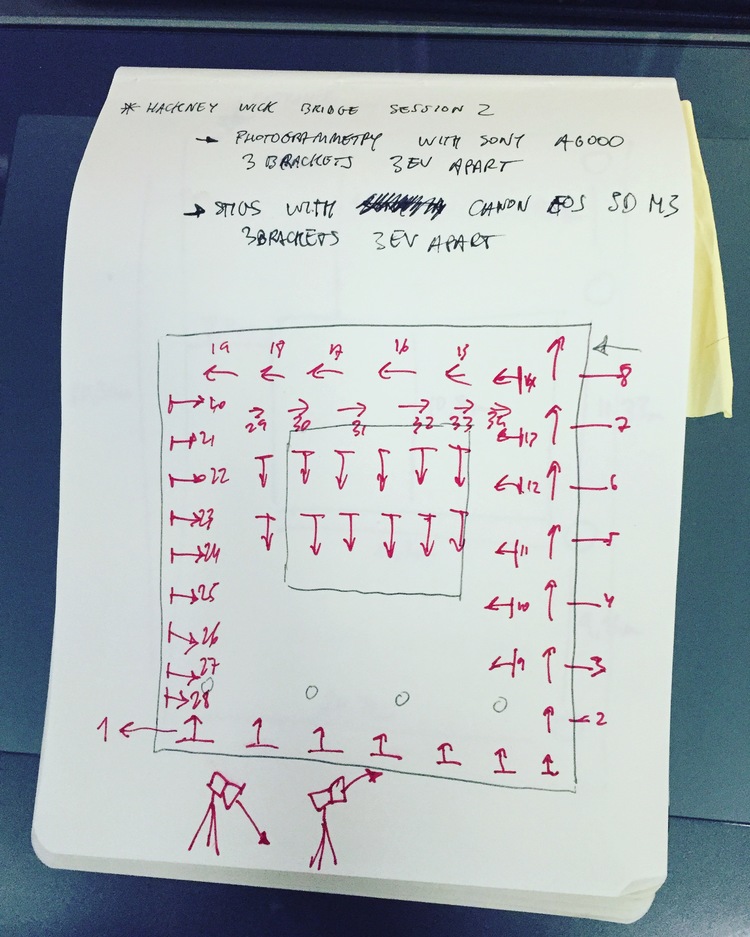 * HACKNEY WICK BRIDGE SESSION 2
→ PHOTOGRAMMETRY WITH SONY A6000
3 BRACKETS 3EV APART
→ WITH CANON EOS 5D M3
3 BRACKETS 3EV APART
19 18 17 16 15 14 8
20 29 30 31 32 33 34 13 7
21
22 12 6
23
24 11 5
25 10 4
26
27 9 3
28
1 2